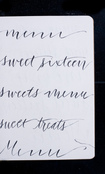 menu
sweet sixteen
sweets menu
sweet treats
Menu